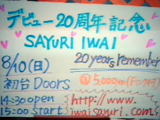 デビュー20周年記念
SAYURI IWAI
20years, Remember
8/10(日)
初台 Doors
①5,000円(ドリンク付)
14:30 open
15:00 start
http://www.
iwaisayuri.com/